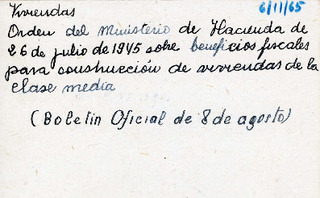 Viviendas 6/11/65
Orden del Ministerio de Hacienda de
26 de julio de 1945 sobre beneficios fiscales
para construcción de viviendas de la
clase media
(Boletin Oficial de 8 de agosto)